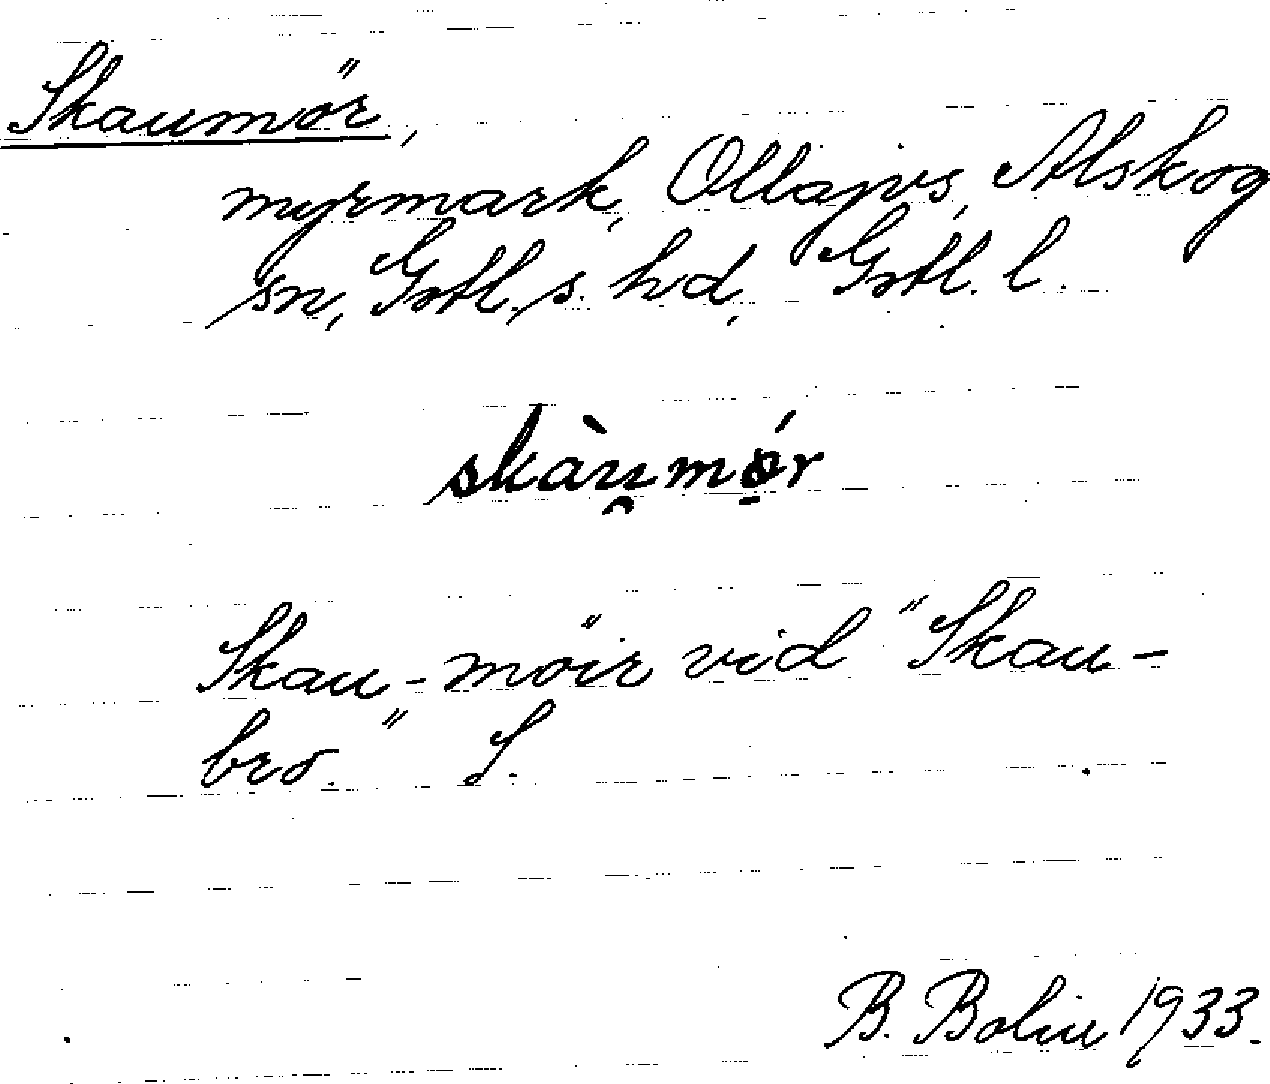 Skaumör,
myrmark, Ollajvs, Alskog
sn, Gotl. s. hd, Gotl. l.
skàu̯mǿ̠r
Skau-möir vid "Skau-
bro." S.
B. Bolin 1933.